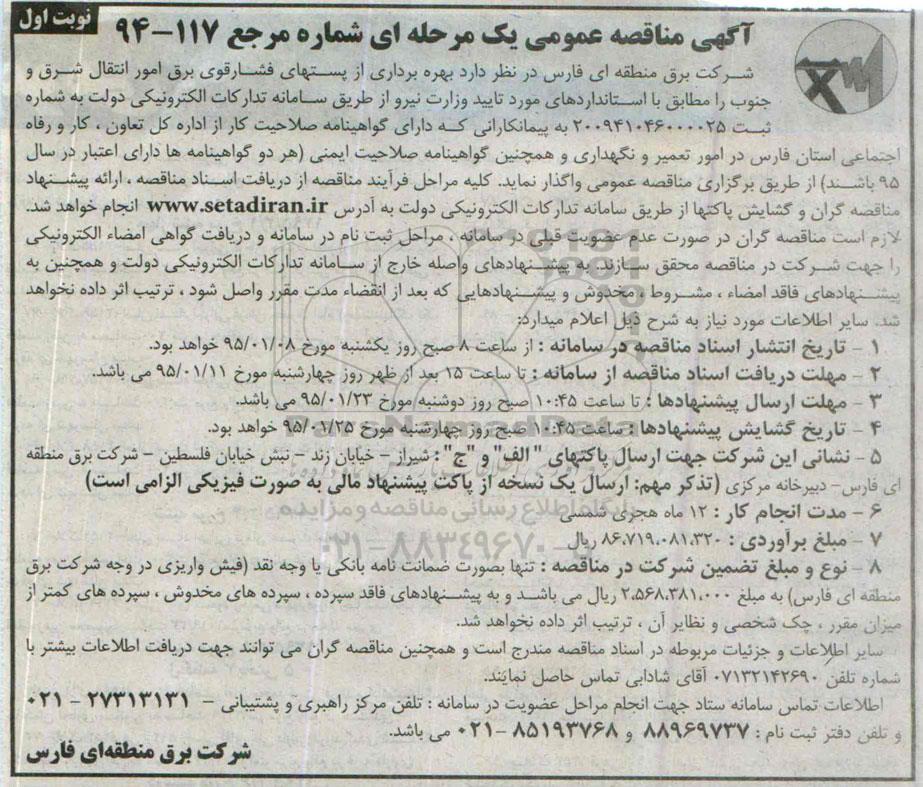 نوبت اول
آگهی مناقصه عمومی یک مرحله ای شماره مرجع ۱۱۷-۹۴
شرکت برق منطقه ای فارس در نظر دارد بهره برداری از پستهای فشارقوی برق امور انتقال شرق و
جنوب را مطابق با استانداردهای مورد تایید وزارت نیرو از طریق سامانه تدارکات الکترونیکی دولت به شماره
ثبت ۲۰۰۹۴۱۰۴۶۰۰۰۰۲۵ به پیمانکارانی که دارای گواهینامه صلاحیت کار از اداره کل تعاون ، کار و رفاه
اجتماعی استان فارس در امور تعمیر و نگهداری و همچنین گواهینامه صلاحیت ایمنی (هر دو گواهینامه ها دارای اعتبار در سال
۹۵ باشند) از طریق برگزاری مناقصه عمومی واگذار نماید. کلیه مراحل فرآیند مناقصه از دریافت اسناد مناقصه ، ارائه پیشنهاد
مناقصه گران و گشایش پاکتها از طریق سامانه تدارکات الکترونیکی دولت به آدرس www.setadiran.ir انجام خواهد شد.
لازم است مناقصه گران در صورت عدم عضویت قبلی در سامانه ، مراحل ثبت نام در سامانه و دریافت گواهی امضاء الکترونیکی
را جهت شرکت در مناقصه محقق سازند. به پیشنهادهای واصله خارج از سامانه تدارکات الکترونیکی دولت و همچنین به
پیشنهادهای فاقد امضاء ، مشروط ، مخدوش و پیشنهادهایی که بعد از انقضاء مدت مقرر واصل شود ، ترتیب اثر داده نخواهد
شد. سایر اطلاعات مورد نیاز به شرح ذیل اعلام میدارد:
۱ - تاریخ انتشار اسناد مناقصه در سامانه : از ساعت ۸ صبح روز یکشنبه مورخ ۹۵/۰۱/۰۸ خواهد بود.
۲ - مهلت دریافت اسناد مناقصه از سامانه : تا ساعت ۱۵ بعد از ظهر روز چهارشنبه مورخ ۹۵/۰۱/۱۱ می باشد.
۳ - مهلت ارسال پیشنهادها : تا ساعت ۱۰:۴۵ صبح روز دوشنبه مورخ ۹۵/۰۱/۲۳ می باشد.
۴ - تاریخ گشایش پیشنهادها : ساعت ۱۰:۴۵ صبح روز چهارشنبه مورخ ۹۵/۰۱/۲۵ خواهد بود.
۵ - نشانی این شرکت جهت ارسال پاکتهای " الف" و "ج" : شیراز - خیابان زند - نبش خیابان فلسطین - شرکت برق منطقه
ای فارس- دبیرخانه مرکزی (تذکر مهم: ارسال یک نسخه از پاکت پیشنهاد مالی به صورت فیزیکی الزامی است)
۶ - مدت انجام کار : ۱۲ ماه هجری شمسی
۷ - مبلغ برآوردی : ۸۶.۷۱۹.۰۸۱.۳۲۰ ریال
۸ - نوع و مبلغ تضمین شرکت در مناقصه : تنها بصورت ضمانت نامه بانکی یا وجه نقد (فیش واریزی در وجه شرکت برق
منطقه ای فارس) به مبلغ ۲.۵۶۸.۳۸۱.۰۰۰ ریال می باشد و به پیشنهادهای فاقد سپرده ، سپرده های مخدوش ، سپرده های کمتر از
میزان مقرر ، چک شخصی و نظایر آن ، ترتیب اثر داده نخواهد شد.
سایر اطلاعات و جزئیات مربوطه در اسناد مناقصه مندرج است و همچنین مناقصه گران می توانند جهت دریافت اطلاعات بیشتر با
شماره تلفن ۰۷۱۳۲۱۴۲۶۹۰ آقای شادابی تماس حاصل نمایند.
اطلاعات تماس سامانه ستاد جهت انجام مراحل عضویت در سامانه : تلفن مرکز راهبری و پشتیبانی - ۲۷۳۱۳۱۳۱ - ۰۲۱
و تلفن دفتر ثبت نام : ۸۸۹۶۹۷۳۷ و ۸۵۱۹۳۷۶۸ -۰۲۱ می باشد.
شرکت برق منطقه‌ای فارس
ParsNamadData
پایگاه اطلاع رسانی مناقصه و مزایده
۰۲۱-۸۸۳۴۹۶۷۰-۵